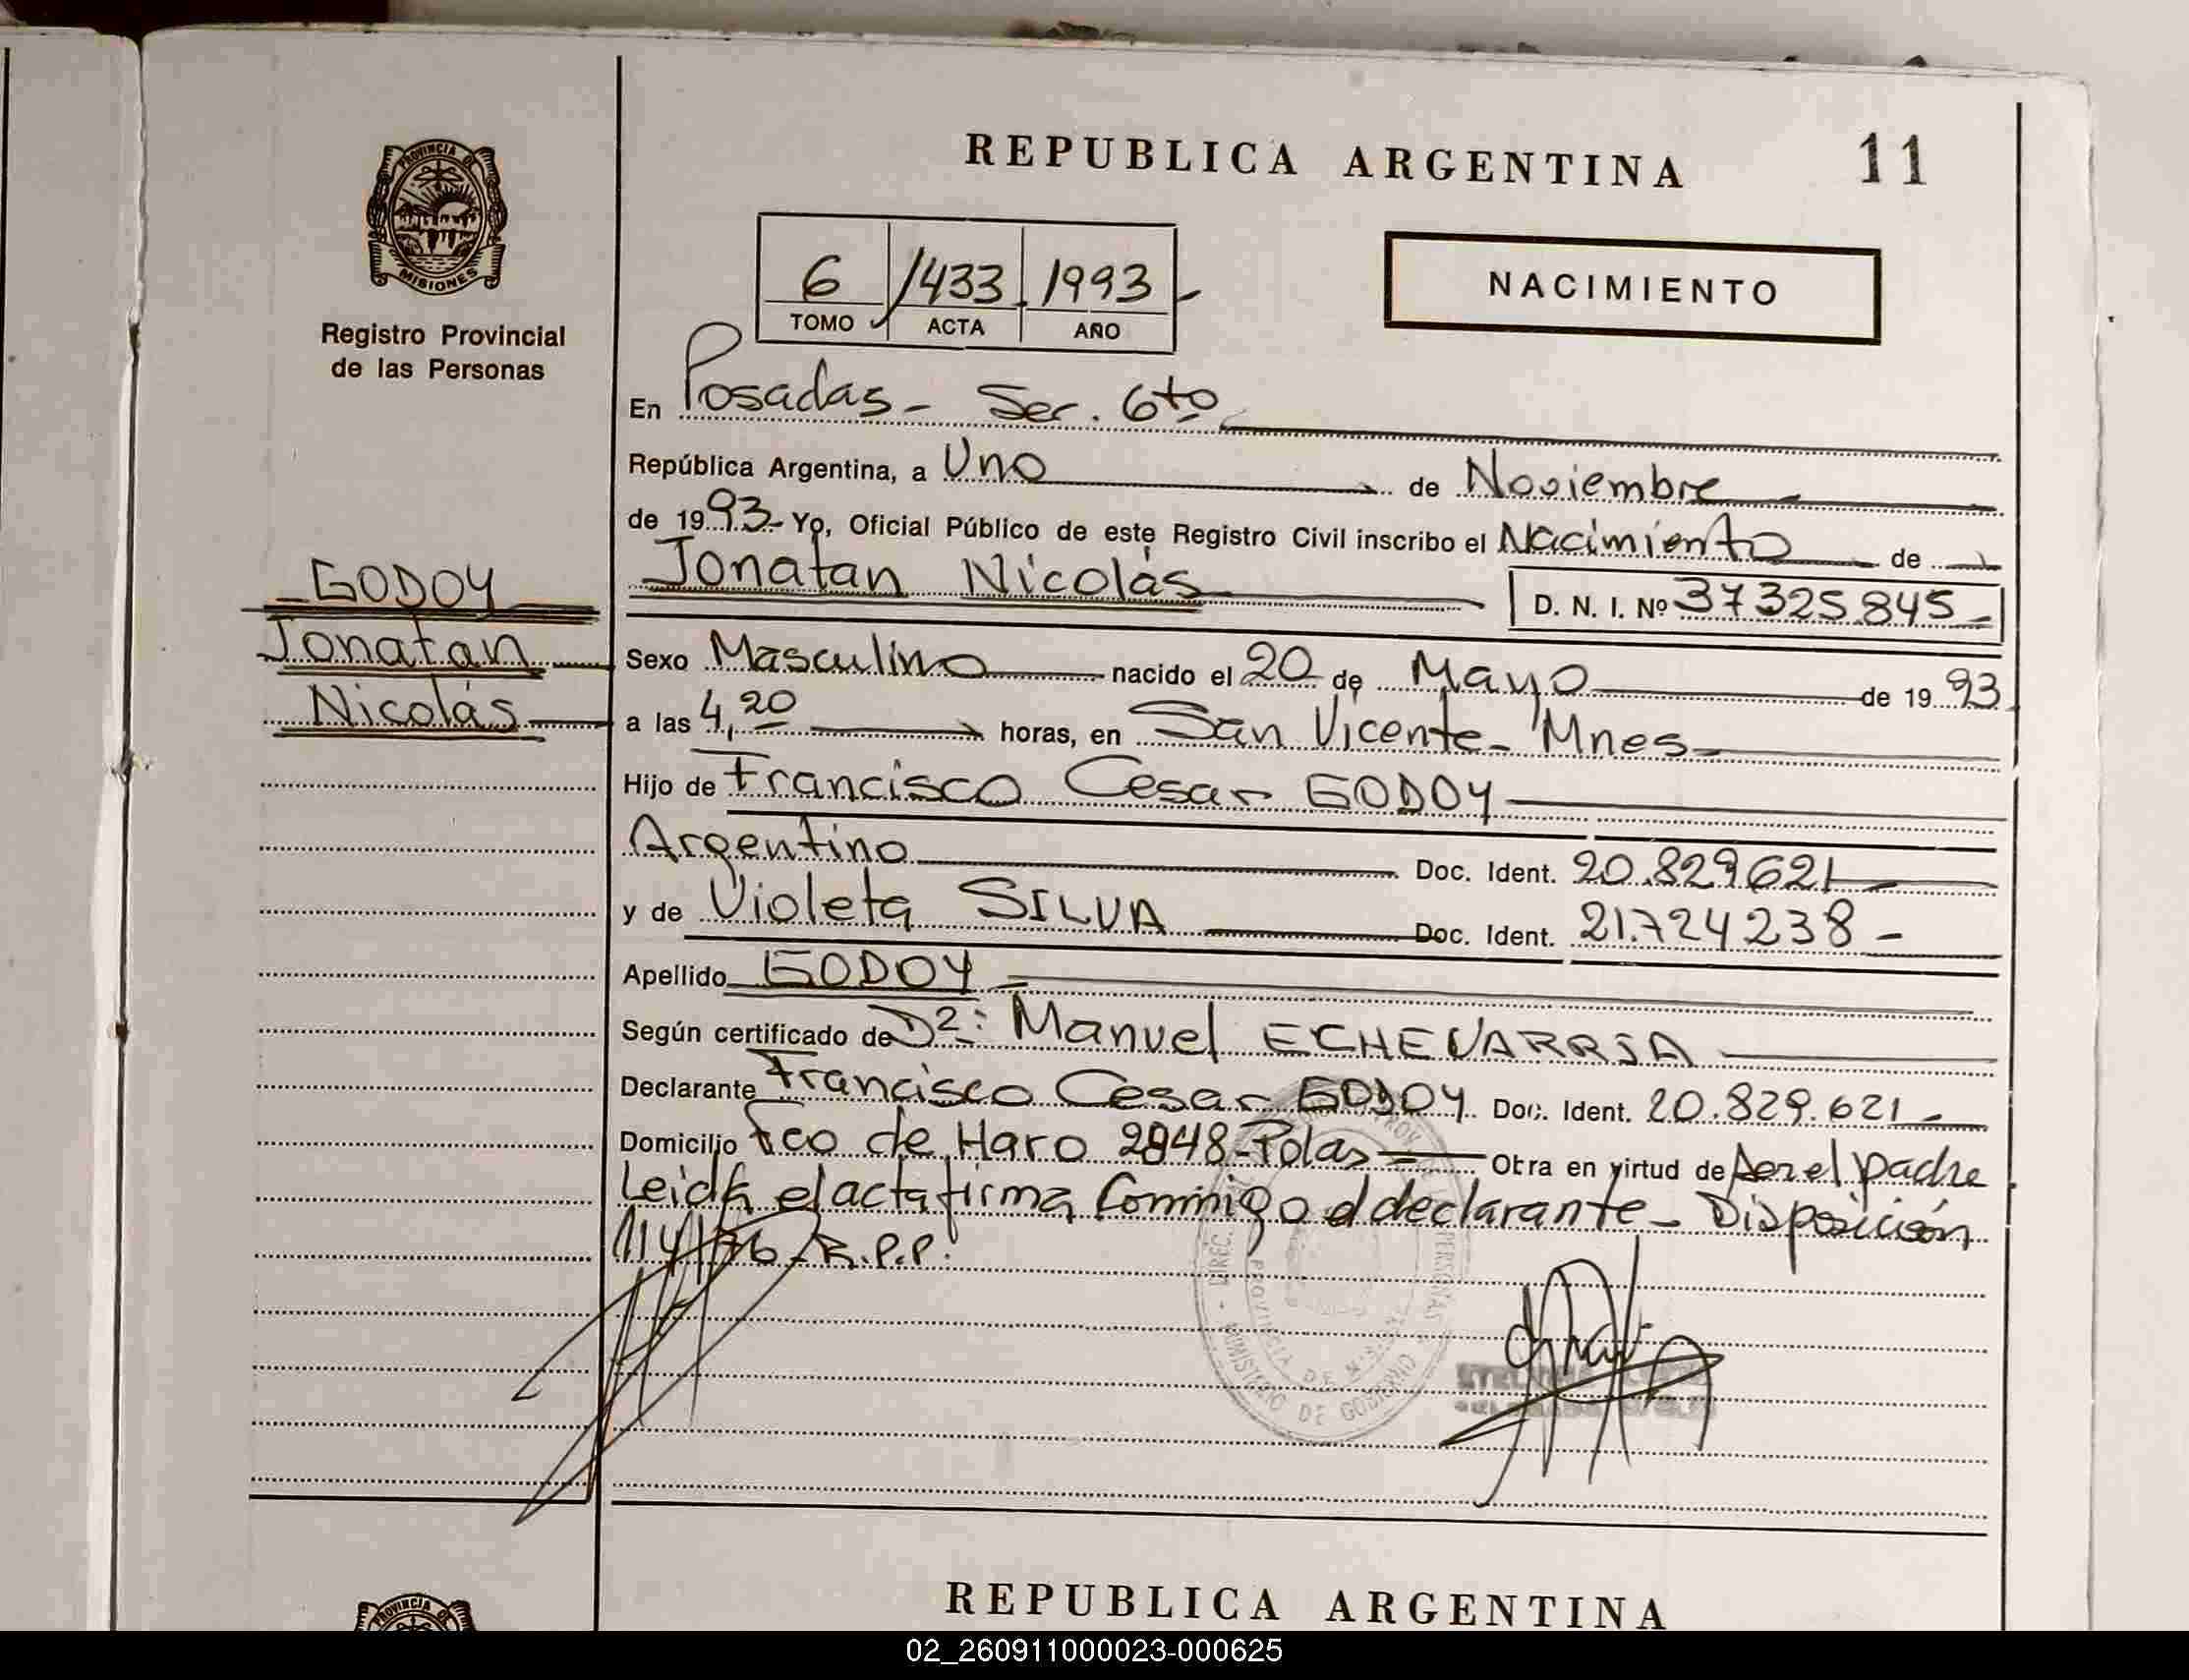 REPUBLICA ARGENTINA
11
PROVINCIA DE
MISIONES
Registro Provincial
de las Personas
6 1433 1993
TOMO ACTA AÑO
NACIMIENTO
En Posadas - Sec. 6to
República Argentina, a Uno de Noviembre
de 1993 - Yo, Oficial Público de este Registro Civil inscribo el Nacimiento de
Jonatan Nicolás D. N. I. Nº 37325.845
GODOY
Jonatan
Nicolás
Sexo Masculino nacido el 20 de Mayo de 1993
a las 4,20 horas, en San Vicente - Mnes
Hijo de Francisco Cesar GODOY
Argentino Doc. Ident. 20.829621
y de Violeta SILVA Doc. Ident. 21.724238 -
Apellido GODOY
Según certificado de Manuel ECHEVARRIA
Declarante Francisco Cesar GODOY Doc. Ident. 20.829.621
Domicilio Fco de Haro Otra en virtud de ser el padre
Leida el acta firma Conmigo el declarante - Disposición
R.P.P.
MINISTERIO DE GOBIERNO
PROVINCIA DE
PERSONAS
PROVINCIA DE
REPUBLICA ARGENTINA
02_260911000023-000625